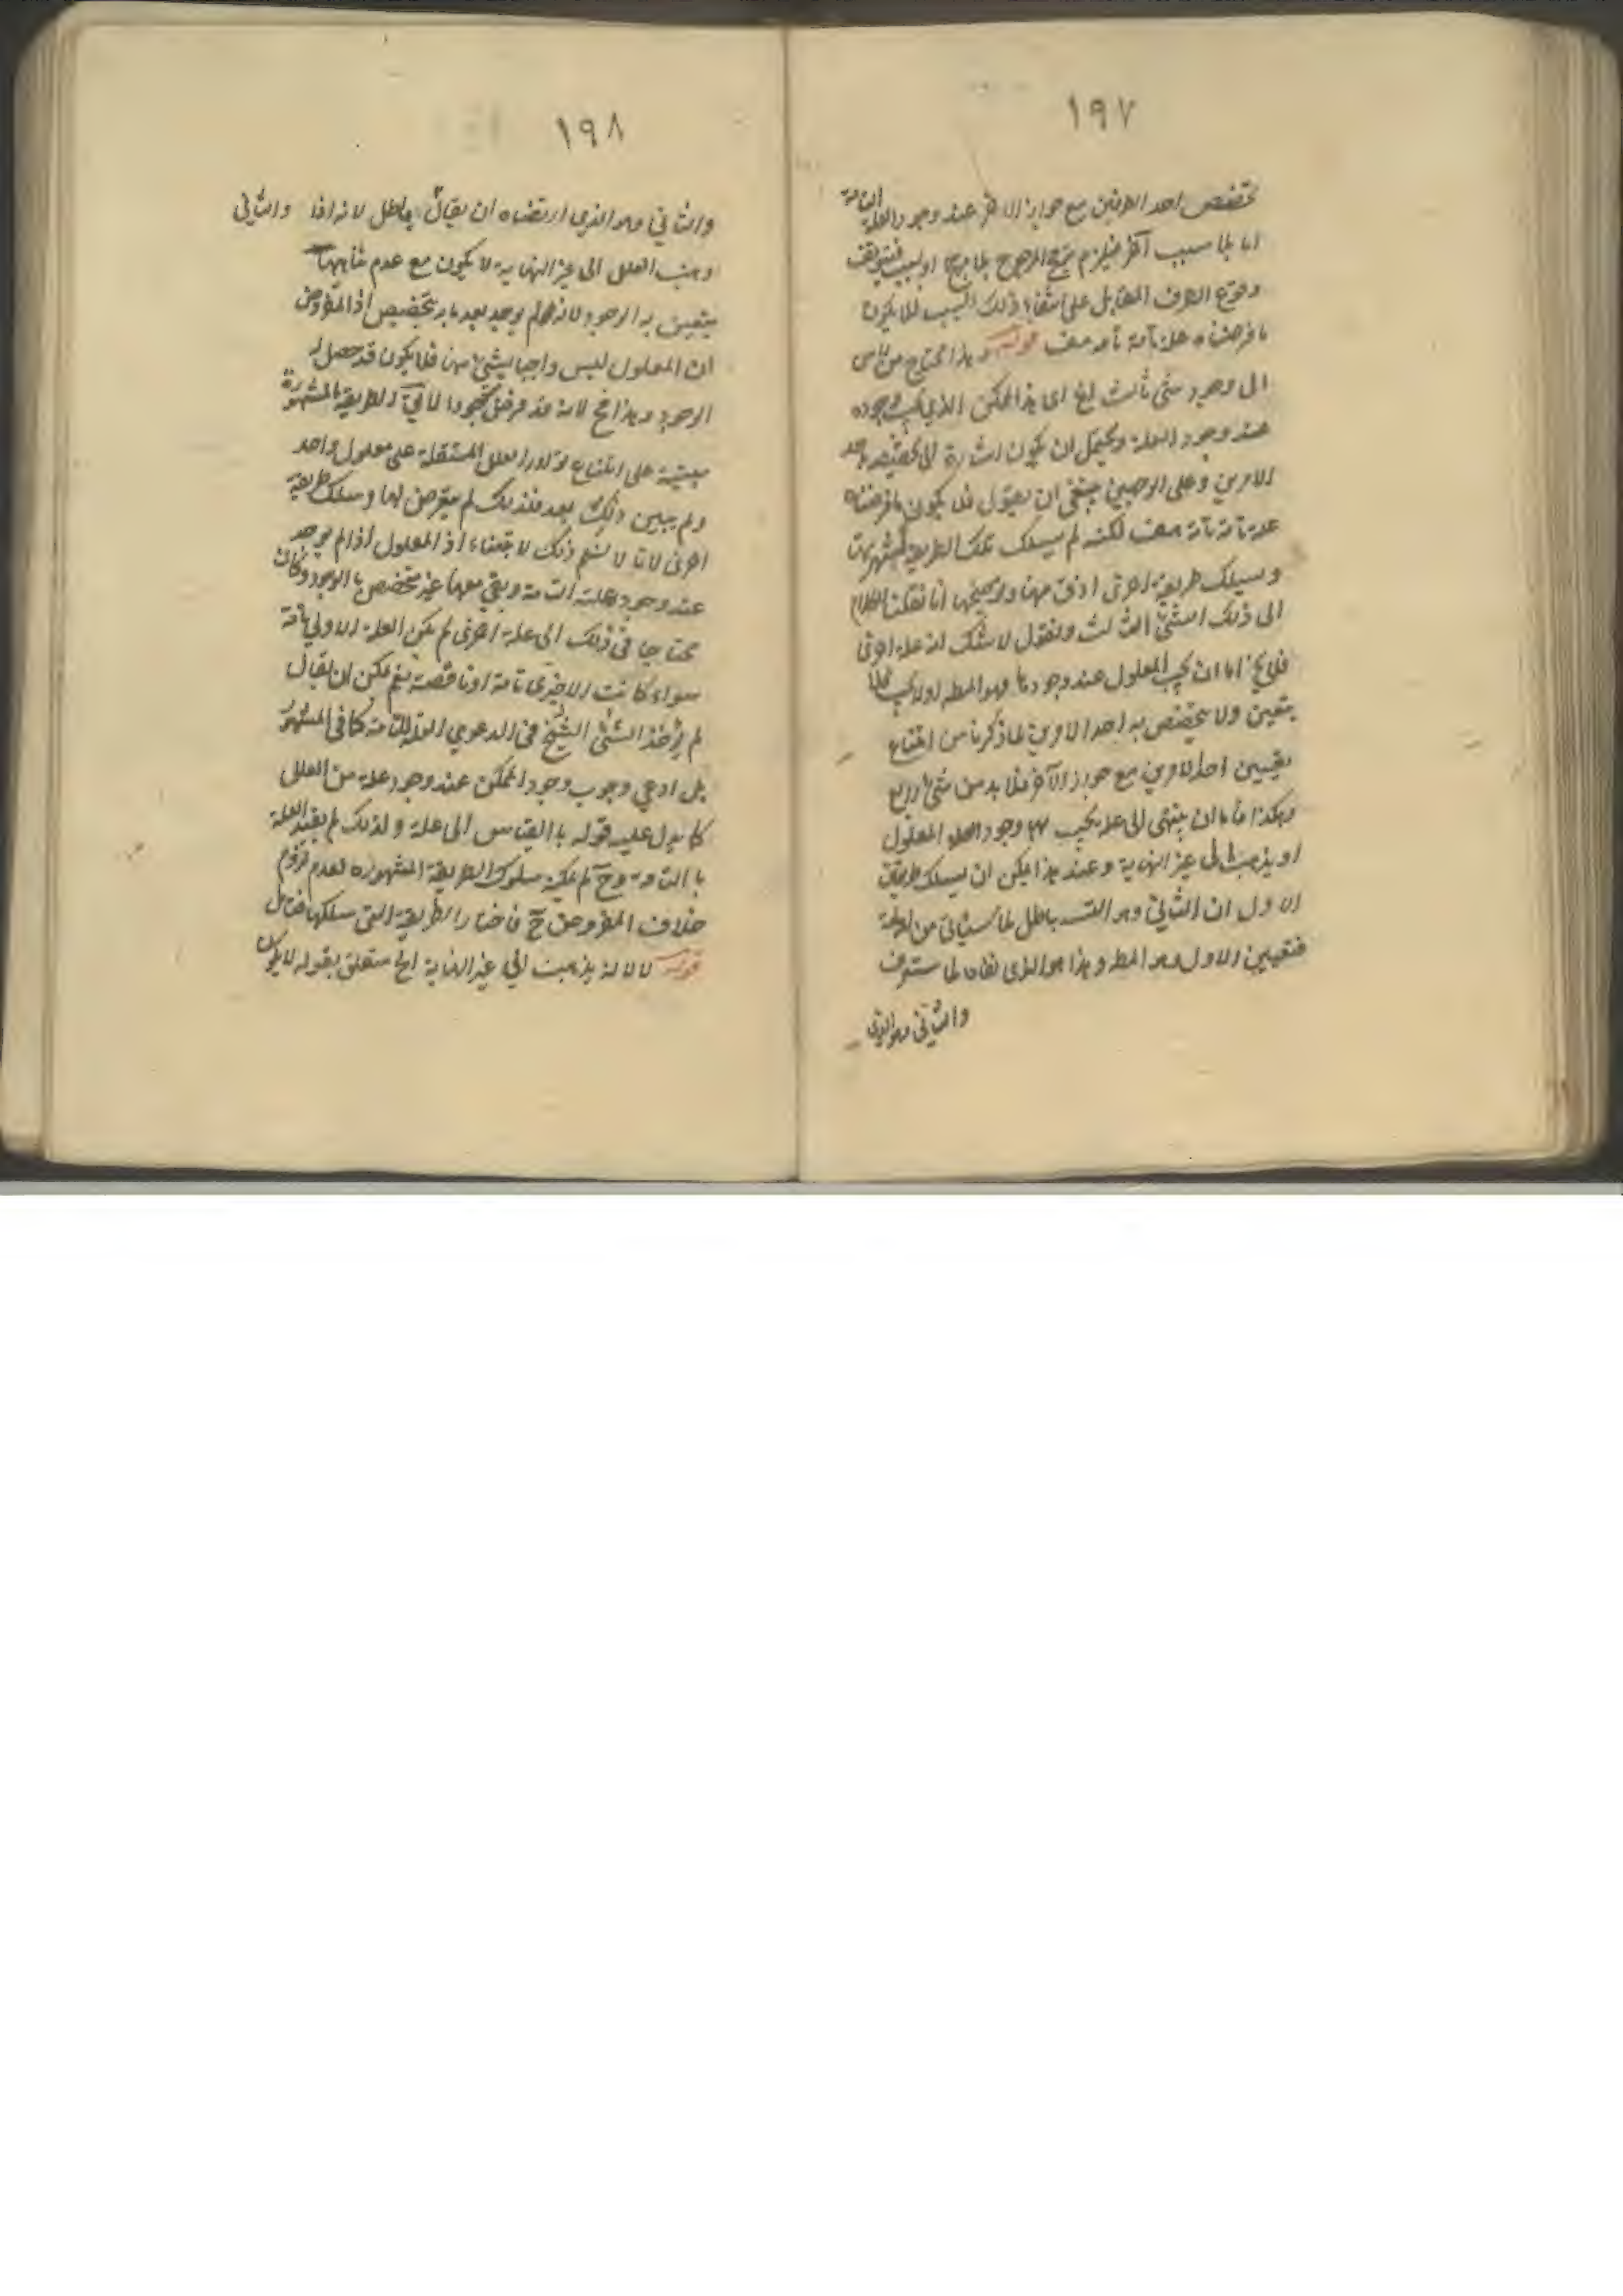 ١٩٧
تخصص احد الطرفين مع جواز الاخر عند وجود العلة التامة
اما بلا سبب آخر فيلزم ترجح المرجوح بلا مرجح او لسبب فيتوقف
وقوع الطرف المقابل على انتفاء ذلك السبب فلا يكون
ما فرضناه علة تامة تامة هف قوله وهذا محتاج من راس
الى وجود شئ ثالث الخ اى هذا الممكن الذي يجب وجوده
عند وجود العلة ويحتمل ان يكون اشارة الى تخصيصه باحد
الامرين وعلى الوجهين ينبغى ان يقول فلا يكون ما فرضناه
علة تامة تامة هف لكنه لم يسلك تلك الطريقة المشهورة
وسيلك طريقة اخرى ادق منها وتوضيحها انا نقلنا الكلام
الى ذلك الشئ الثالث ونقول لا شك انه علة اخرى
فلا يخ اما ان يجب المعلول عند وجودها وهو المط او لا يجب فلا
يتعين ولا يتخصص به احد الامرين لما ذكرنا من امتناع
تعيين احد الامرين مع جواز الآخر فلا بد من شئ رابع
وهكذا فاما ان ينتهى الى علة يجب بها وجود المعلول
او يذهب الى غير النهاية وعند هذا يمكن ان يسلك طريقان
الاول ان الثاني وهو التسـ باطل لما سيأتي من
فتعيين الاول وهو المط وهذا هو الذى نفاه لما ستعرف
والثاني وهو الذى
١٩٨
والثاني وهو الذي ارتضاه ان يقال باطل لانه اذا والثاني
ذهب العلل الى غير النهاية لا يكون مع عدم تناهيها
يتعين به الوجود لانه لم يوجد بعد ما به تخصيص اذ المفروض
ان المعلول ليس واجبا بشئ منها فلا يكون قد حصل له
الوجود وهذا مح لانه قد فرض موجودا الطريقة المشهورة
مبتنية على امتناع توارد العلل المستقلة على معلول واحد
ولم يبين ذلك بعد فلذلك لم يتعرض لها وسلك طريقة
اخرى لانا لا نسلم ذلك لابتناء اذ المعلول اذا لم يوجد
عند وجود علته التامة وبقي معها غير متخصص بالوجود وكان
محتاجا فى ذلك الى علة اخرى لم يكن العلة الاولى تامة
سواء كانت الاخرى تامة او ناقصة نعم يمكن ان يقال
لم يأخذ الشيخ فى الدعوي العلة التامة كما فى المشهور
بل ادعي وجوب وجود الممكن عند وجود علة من العلل
كما يدل عليه قوله بالقياس الى علة ولذلك لم يقيد العلة
بالتامة وح لم يمكنه سلوك الطريقة المشهورة لعدم لزوم
خلاف المفروض ح فاختار الطريقة التى سلكها فتأمل
قوله لا لانه يذهب الى غير النهاية الخ متعلق بقوله لا يكون